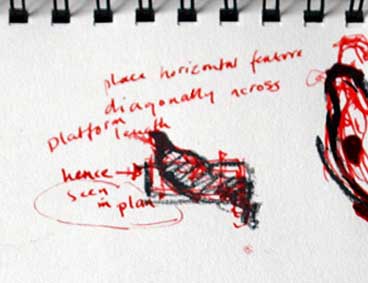 place horizontal feature
diagonally across
Platform
length
hence
seen
in plan